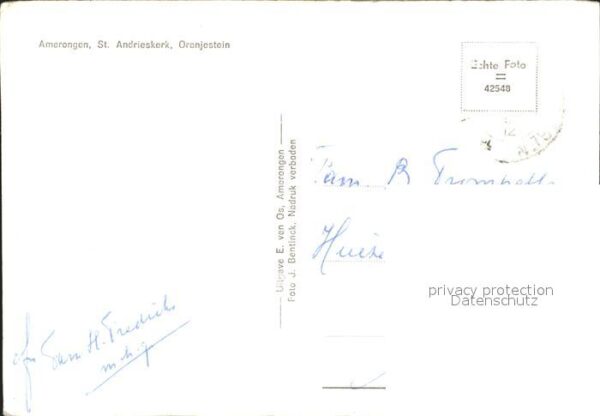 Amerongen, St. Andrieskerk, Oranjestein
Echte Foto
42548
Uitgave E. van Os, Amerongen
Foto J. Bentinck, Nadruk verboden
Fam. R
privacy protection
Datenschutz
Fam H. Fredriks
m.h.g.